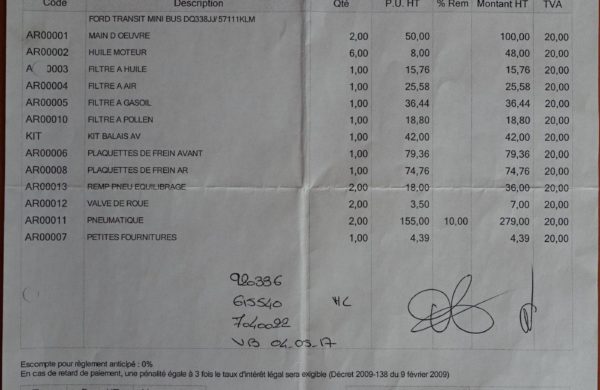 Code Description Qté P.U. HT % Rem Montant HT TVA
FORD TRANSIT MINI BUS DQ338JJ/ 57111KLM
AR00001 MAIN D OEUVRE 2,00 50,00 100,00 20,00
AR00002 HUILE MOTEUR 6,00 8,00 48,00 20,00
A 0003 FILTRE A HUILE 1,00 15,76 15,76 20,00
AR00004 FILTRE A AIR 1,00 25,58 25,58 20,00
AR00005 FILTRE A GASOIL 1,00 36,44 36,44 20,00
AR00010 FILTRE A POLLEN 1,00 18,80 18,80 20,00
KIT KIT BALAIS AV 1,00 42,00 42,00 20,00
AR00006 PLAQUETTES DE FREIN AVANT 1,00 79,36 79,36 20,00
AR00008 PLAQUETTES DE FREIN AR 1,00 74,76 74,76 20,00
AR00013 REMP PNEU EQUILIBRAGE 2,00 18,00 36,00 20,00
AR00012 VALVE DE ROUE 2,00 3,50 7,00 20,00
AR00011 PNEUMATIQUE 2,00 155,00 10,00 279,00 20,00
AR00007 PETITES FOURNITURES 1,00 4,39 4,39 20,00
615540
Escompte pour règlement anticipé : 0%
En cas de retard de paiement, une pénalité égale à 3 fois le taux d'intérêt légal sera exigible (Décret 2009-138 du 9 février 2009)